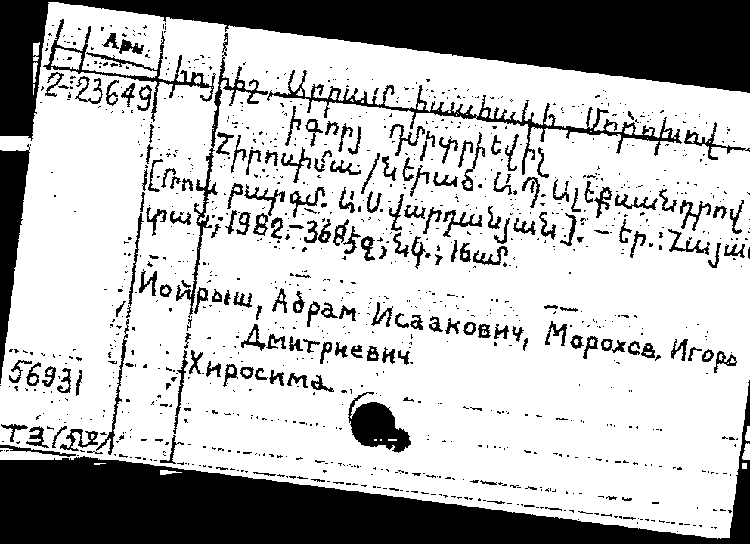 Арм
2-23649
Իոյրիշ, Աբրամ Իսահակի, Մորոխով,
Իգորյ Դմիտրիեվիչ
Հիրոսիմա /Ներած. Ա.Պ. Ալեքսանդրով
[Ռուս. թարգմ. Ա.Ս. Վարդանյան]: – Եր.: Հայաս-
տան, 1982.- 368 էջ; նկ.; 16սմ.
Иойрыш, Абрам Исаакович, Морохов, Игорь
Дмитриевич
Хиросима
56931
ТЗ(5Я)